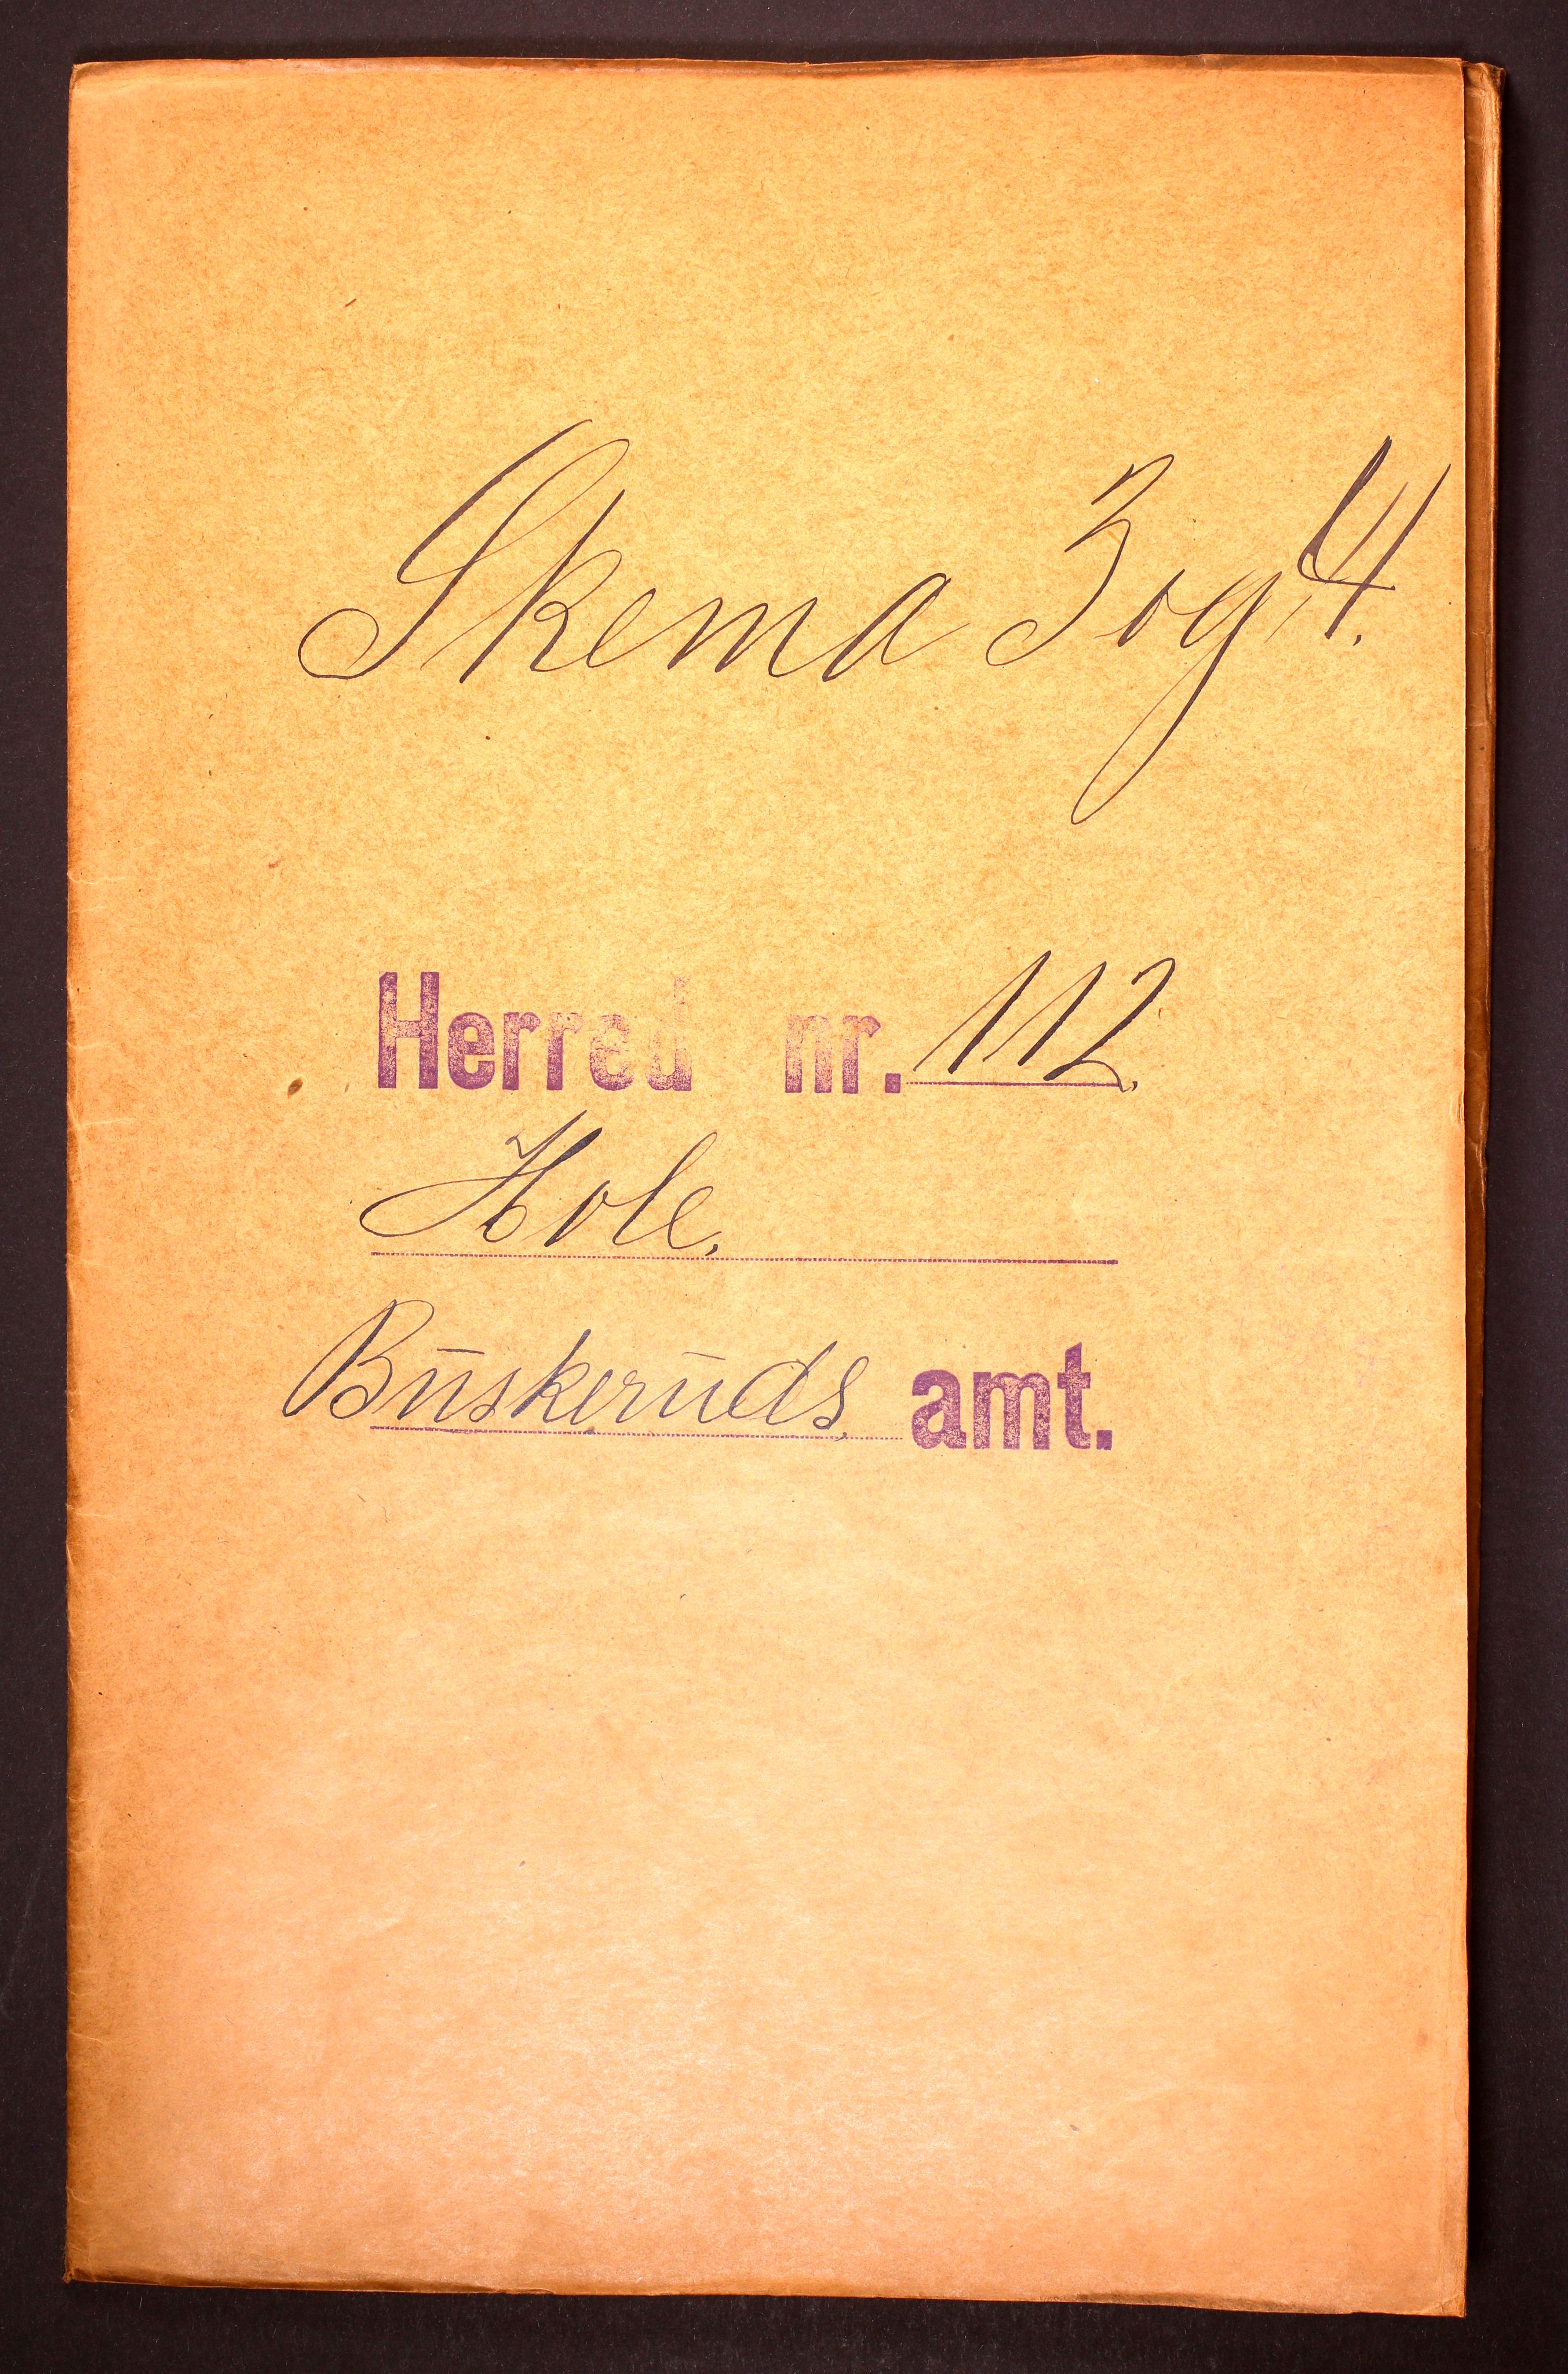 Skema 3 og 4.
Herred nr. 112.
Hole.
Buskeruds amt.